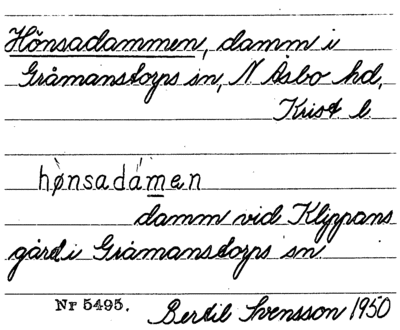 Hönsadammen, damm i
Gråmanstorps sn, N Åsbo hd,
Krist l.
hø̀nsadámen
damm vid Klippans
gård i Gråmanstorps sn.
Nr 5495. Bertil Svensson 1950